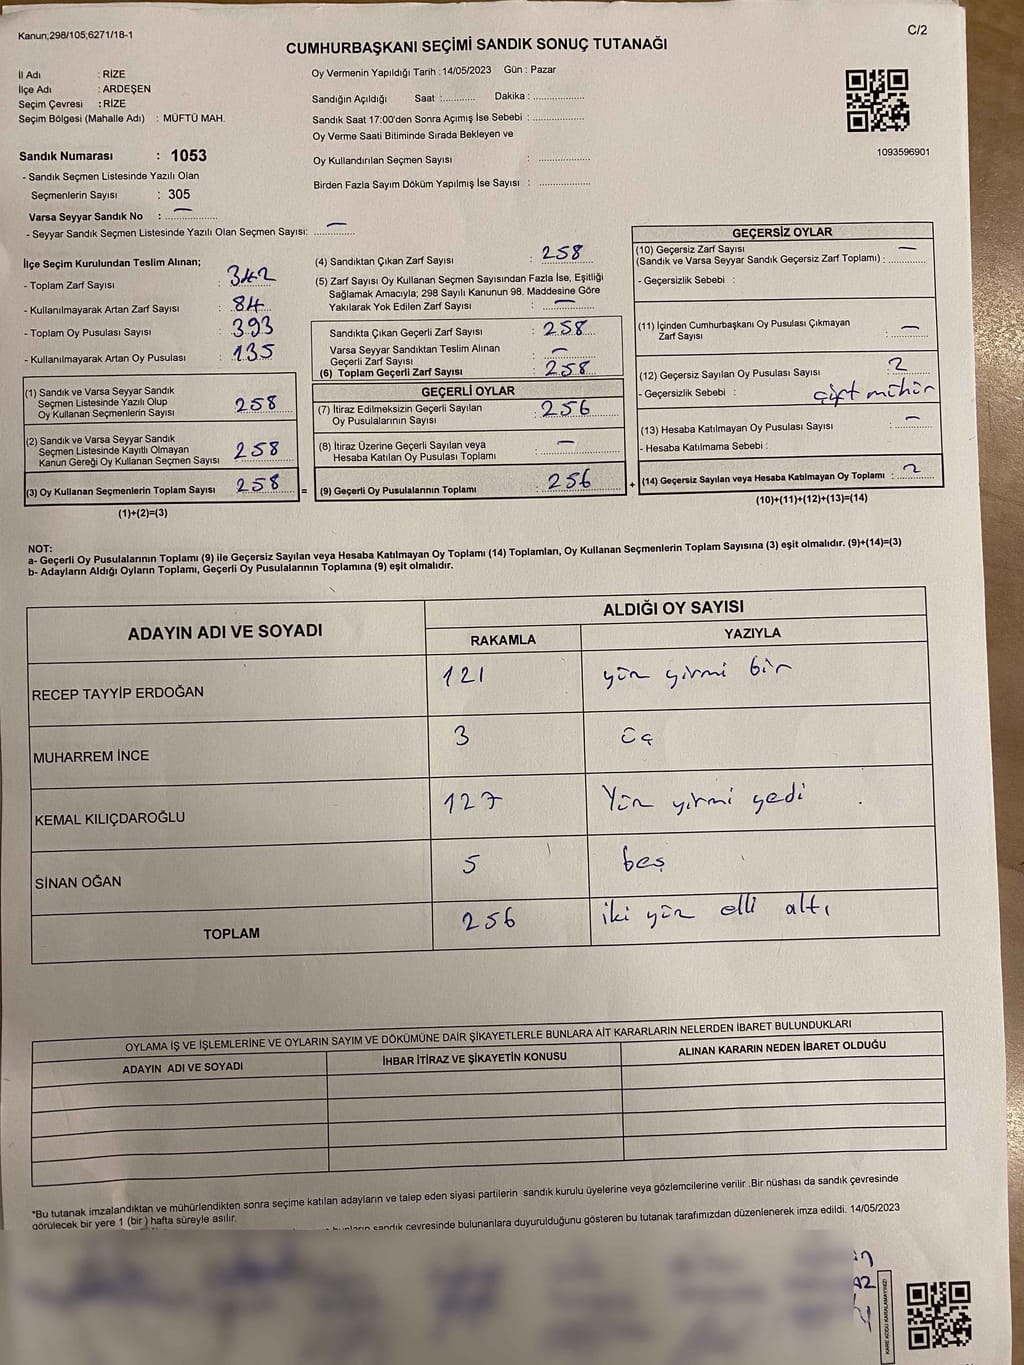 Kanun;298/105;6271/18-1
C/2
CUMHURBAŞKANI SEÇİMİ SANDIK SONUÇ TUTANAĞI
İl Adı : RİZE
İlçe Adı : ARDEŞEN
Seçim Çevresi : RİZE
Seçim Bölgesi (Mahalle Adı) : MÜFTÜ MAH.
Oy Vermenin Yapıldığı Tarih : 14/05/2023 Gün : Pazar
Sandığın Açıldığı Saat :........... Dakika : ..................
Sandık Saat 17:00'den Sonra Açımış İse Sebebi : ..................
Oy Verme Saati Bitiminde Sırada Bekleyen ve
Oy Kullandırılan Seçmen Sayısı : ..................
Birden Fazla Sayım Döküm Yapılmış İse Sayısı : ..................
1093596901
Sandık Numarası : 1053
- Sandık Seçmen Listesinde Yazılı Olan
Seçmenlerin Sayısı : 305
Varsa Seyyar Sandık No : —
- Seyyar Sandık Seçmen Listesinde Yazılı Olan Seçmen Sayısı: —
İlçe Seçim Kurulundan Teslim Alınan;
- Toplam Zarf Sayısı : 342
- Kullanılmayarak Artan Zarf Sayısı : 84
- Toplam Oy Pusulası Sayısı : 393
- Kullanılmayarak Artan Oy Pusulası : 135
(1) Sandık ve Varsa Seyyar Sandık
Seçmen Listesinde Yazılı Olup
Oy Kullanan Seçmenlerin Sayısı 258
(2) Sandık ve Varsa Seyyar Sandık
Seçmen Listesinde Kayıtlı Olmayan
Kanun Gereği Oy Kullanan Seçmen Sayısı 258
(3) Oy Kullanan Seçmenlerin Toplam Sayısı 258 =
(1)+(2)=(3)
(4) Sandıktan Çıkan Zarf Sayısı : 258
(5) Zarf Sayısı Oy Kullanan Seçmen Sayısından Fazla İse, Eşitliği
Sağlamak Amacıyla; 298 Sayılı Kanunun 98. Maddesine Göre
Yakılarak Yok Edilen Zarf Sayısı : —
Sandıkta Çıkan Geçerli Zarf Sayısı : 258
Varsa Seyyar Sandıktan Teslim Alınan
Geçerli Zarf Sayısı : —
(6) Toplam Geçerli Zarf Sayısı : 258
GEÇERLİ OYLAR
(7) İtiraz Edilmeksizin Geçerli Sayılan
Oy Pusulalarının Sayısı : 256
(8) İtiraz Üzerine Geçerli Sayılan veya
Hesaba Katılan Oy Pusulası Toplamı : —
(9) Geçerli Oy Pusulalarının Toplamı : 256 +
GEÇERSİZ OYLAR
(10) Geçersiz Zarf Sayısı
(Sandık ve Varsa Seyyar Sandık Geçersiz Zarf Toplamı) : —
- Geçersizlik Sebebi :
(11) İçinden Cumhurbaşkanı Oy Pusulası Çıkmayan
Zarf Sayısı : —
(12) Geçersiz Sayılan Oy Pusulası Sayısı : 2
- Geçersizlik Sebebi : çift mühür
(13) Hesaba Katılmayan Oy Pusulası Sayısı : —
- Hesaba Katılmama Sebebi :
(14) Geçersiz Sayılan veya Hesaba Katılmayan Oy Toplamı : 2
(10)+(11)+(12)+(13)=(14)
NOT:
a- Geçerli Oy Pusulalarının Toplamı (9) ile Geçersiz Sayılan veya Hesaba Katılmayan Oy Toplamı (14) Toplamları, Oy Kullanan Seçmenlerin Toplam Sayısına (3) eşit olmalıdır. (9)+(14)=(3)
b- Adayların Aldığı Oyların Toplamı, Geçerli Oy Pusulalarının Toplamına (9) eşit olmalıdır.
ADAYIN ADI VE SOYADI
ALDIĞI OY SAYISI
RAKAMLA YAZIYLA
RECEP TAYYİP ERDOĞAN 121 yüz yirmi bir
MUHARREM İNCE 3 üç
KEMAL KILIÇDAROĞLU 127 Yüz yirmi yedi
SİNAN OĞAN 5 beş
TOPLAM 256 iki yüz elli altı
OYLAMA İŞ VE İŞLEMLERİNE VE OYLARIN SAYIM VE DÖKÜMÜNE DAİR ŞİKAYETLERLE BUNLARA AİT KARARLARIN NELERDEN İBARET BULUNDUKLARI
ADAYIN ADI VE SOYADI İHBAR İTİRAZ VE ŞİKAYETİN KONUSU ALINAN KARARIN NEDEN İBARET OLDUĞU
*Bu tutanak imzalandıktan ve mühürlendikten sonra seçime katılan adayların ve talep eden siyasi partilerin sandık kurulu üyelerine veya gözlemcilerine verilir .Bir nüshası da sandık çevresinde
görülecek bir yere 1 (bir ) hafta süreyle asılır.
bunların sandık çevresinde bulunanlara duyurulduğunu gösteren bu tutanak tarafımızdan düzenlenerek imza edildi. 14/05/2023
KARE KODU KARALAMAYINIZ!